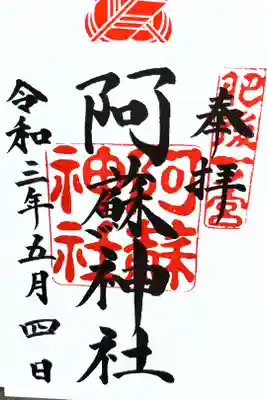 肥後一宮
奉拝
阿蘇神社
阿蘇神社
令和三年五月四日